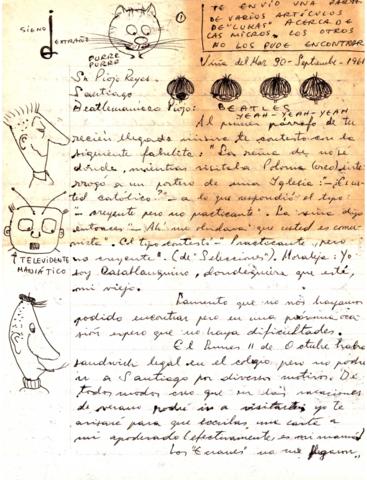 SIGNO
EXTRAÑO
PURRE
PURRO
1
TE ENVÍO UNA PARTE
DE VARIOS ARTÍCULOS
DE "LUKAS" ACERCA DE
LAS MICROS. LOS OTROS
NO LOS PUDE ENCONTRAR
Viña del Mar 30-Septiembre-196
Sr. Piojo Reyes.
Santiago
BEATLES
YEAH-YEAH-YEAH
Beatlemaníaco Piojo:
Al primer párrafo de tu
recién llegada misiva te contesto con la
siguiente fabulita: "La reina de no sé
dónde, mientras visitaba Polonia (creo), inte-
rrogó a un portero de una Iglesia: -¿Es us-
ted católico?" - a lo que respondió el tipo:
- creyente pero no practicante". La reina dijo
entonces - Ah! me olvidaba que usted es comu-
nista". El tipo contestó - Practicante, pero
no creyente". (de Selecciones). Moraleja: Yo
soy Casablanquino, dondequiera que esté,
mi viejo.
TELEVIDENTE
MANIÁTICO
Lamento que no nos hayamos
podido encontrar pero en una próxima oca-
sión espero que no haya dificultades.
El Lunes 11 de Octubre habrá
sandwich legal en el colegio, pero no podré
ir a Santiago por diversos motivos. De
todos modos creo que en las vacaciones
de verano podré ir a visitarte, yo te
avisaré para que escribas una carta a
mi apoderado (efectivamente, es mi mamá)
Los "Ecranes" no me llegaron,